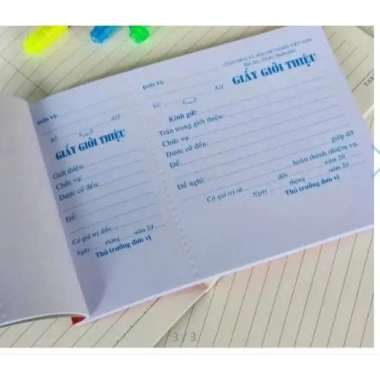 ĐƠN VỊ:
Số /GT
GIẤY GIỚI THIỆU
Giới thiệu:
Chức vụ:
Được cử đến:
Để:
Có giá trị đến:
Ngày tháng năm 20
Thủ trưởng đơn vị
ĐƠN VỊ:
CỘNG HÒA XÃ HỘI CHỦ NGHĨA VIỆT NAM
Số /GT
GIẤY GIỚI THIỆU
Kính gửi:
Trân trọng giới thiệu:
Chức vụ:
Được cử đến:
Để:
Đề nghị: giúp đỡ
hoàn thành nhiệm vụ.
Có giá trị từ đến
Ngày tháng năm 20
Thủ trưởng đơn vị
3 / 3